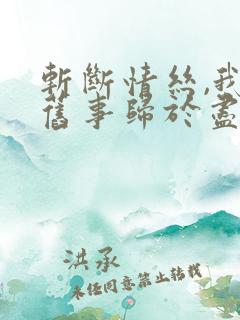 斬斷情絲,我
舊事歸於盡
洪承
未经同意禁止转载